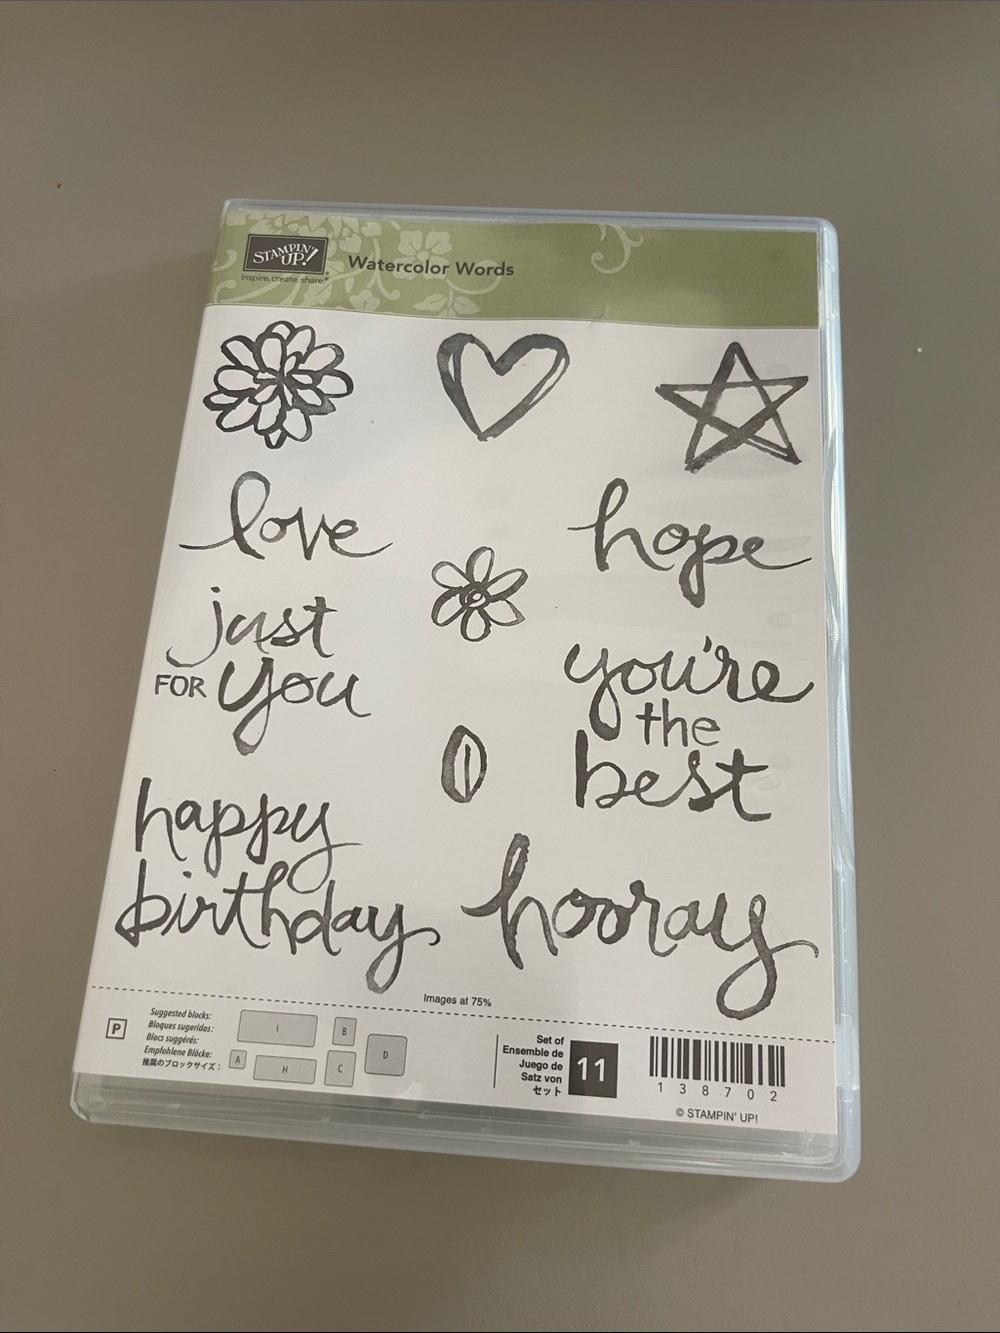 STAMPIN' UP!®
inspire. create. share.®
Watercolor Words
love
hope
just
FOR you
you're
the
best
happy
birthday
hooray
Images at 75%
P
Suggested blocks:
Bloques sugeridos:
Blocs suggérés:
Empfohlene Blöcke:
推奨のブロックサイズ:
I
B
A
H
C
D
Set of
Ensemble de
Juego de
Satz von
セット
11
138702
© STAMPIN' UP!